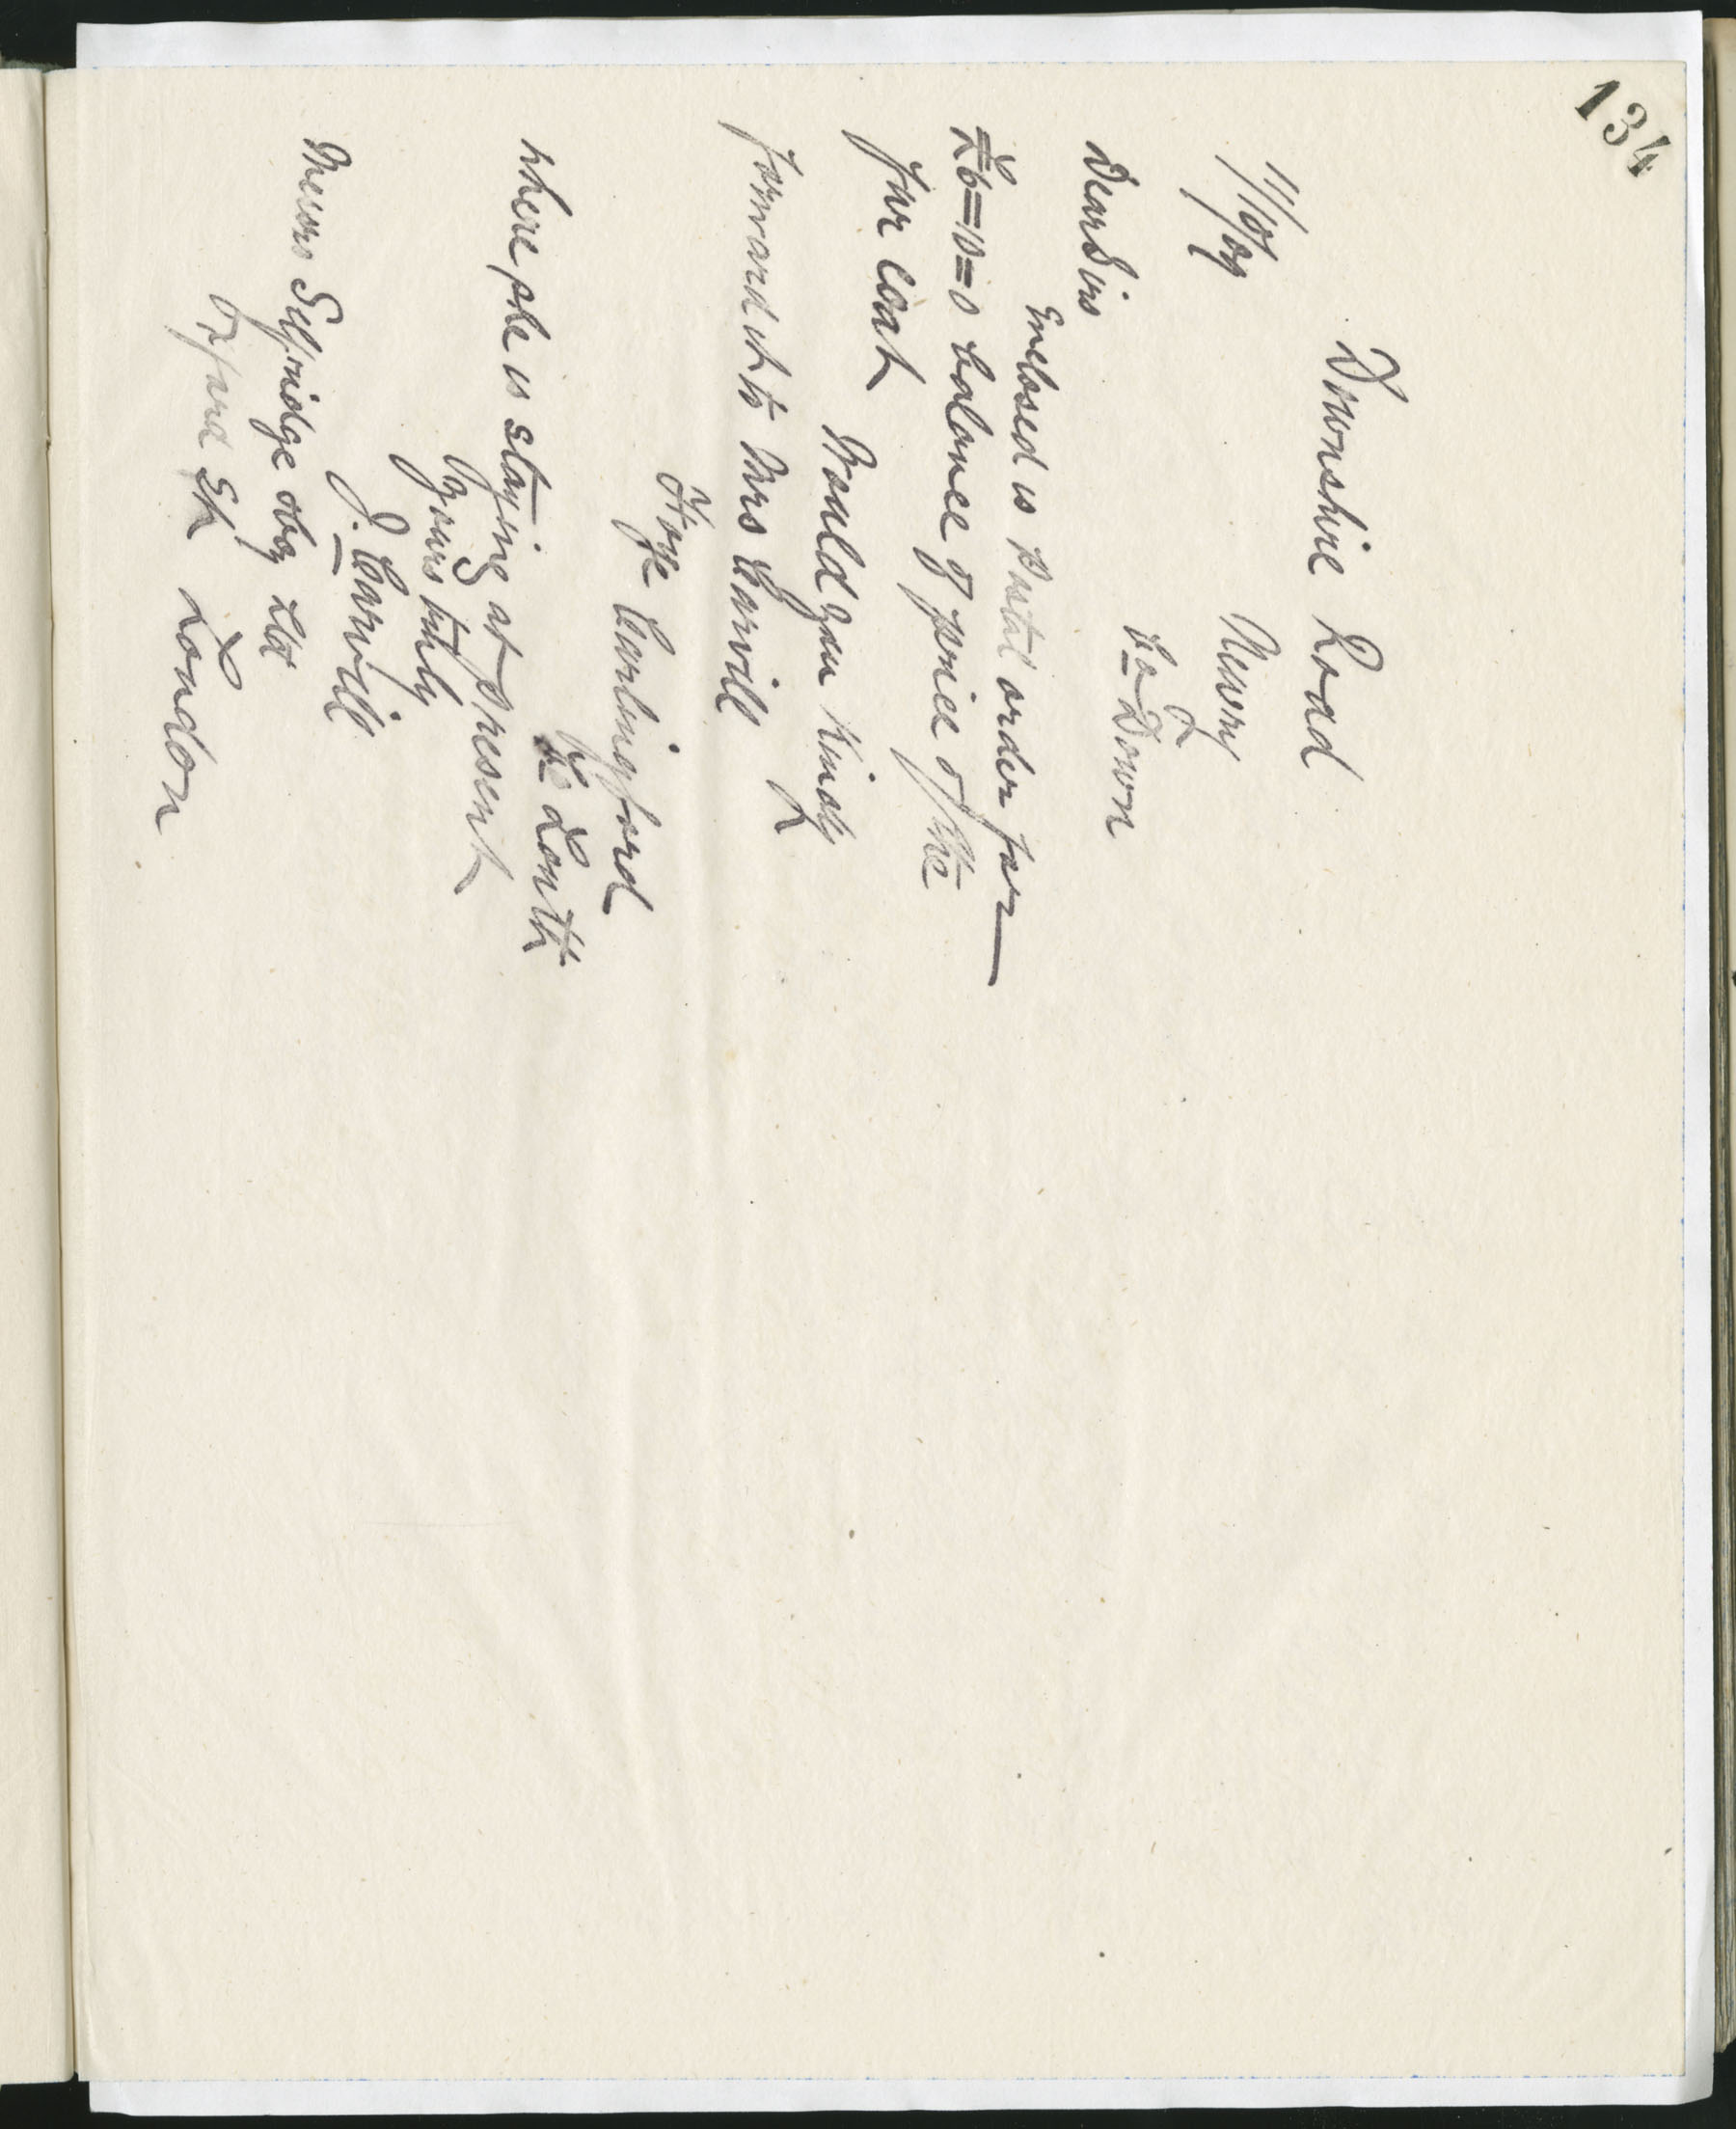 134
Downshire Road
Newry
Co Down
Dear Sirs
Enclosed is Postal order for
£6=0=0 balance of price of the
fur coat
Would you kindly
forward it to Mrs Carvill
Carlingford
Co Louth
where she is staying at present
Yours truly
J. Carvill
Messrs Selfridge & Coy Ltd
Oxford St London